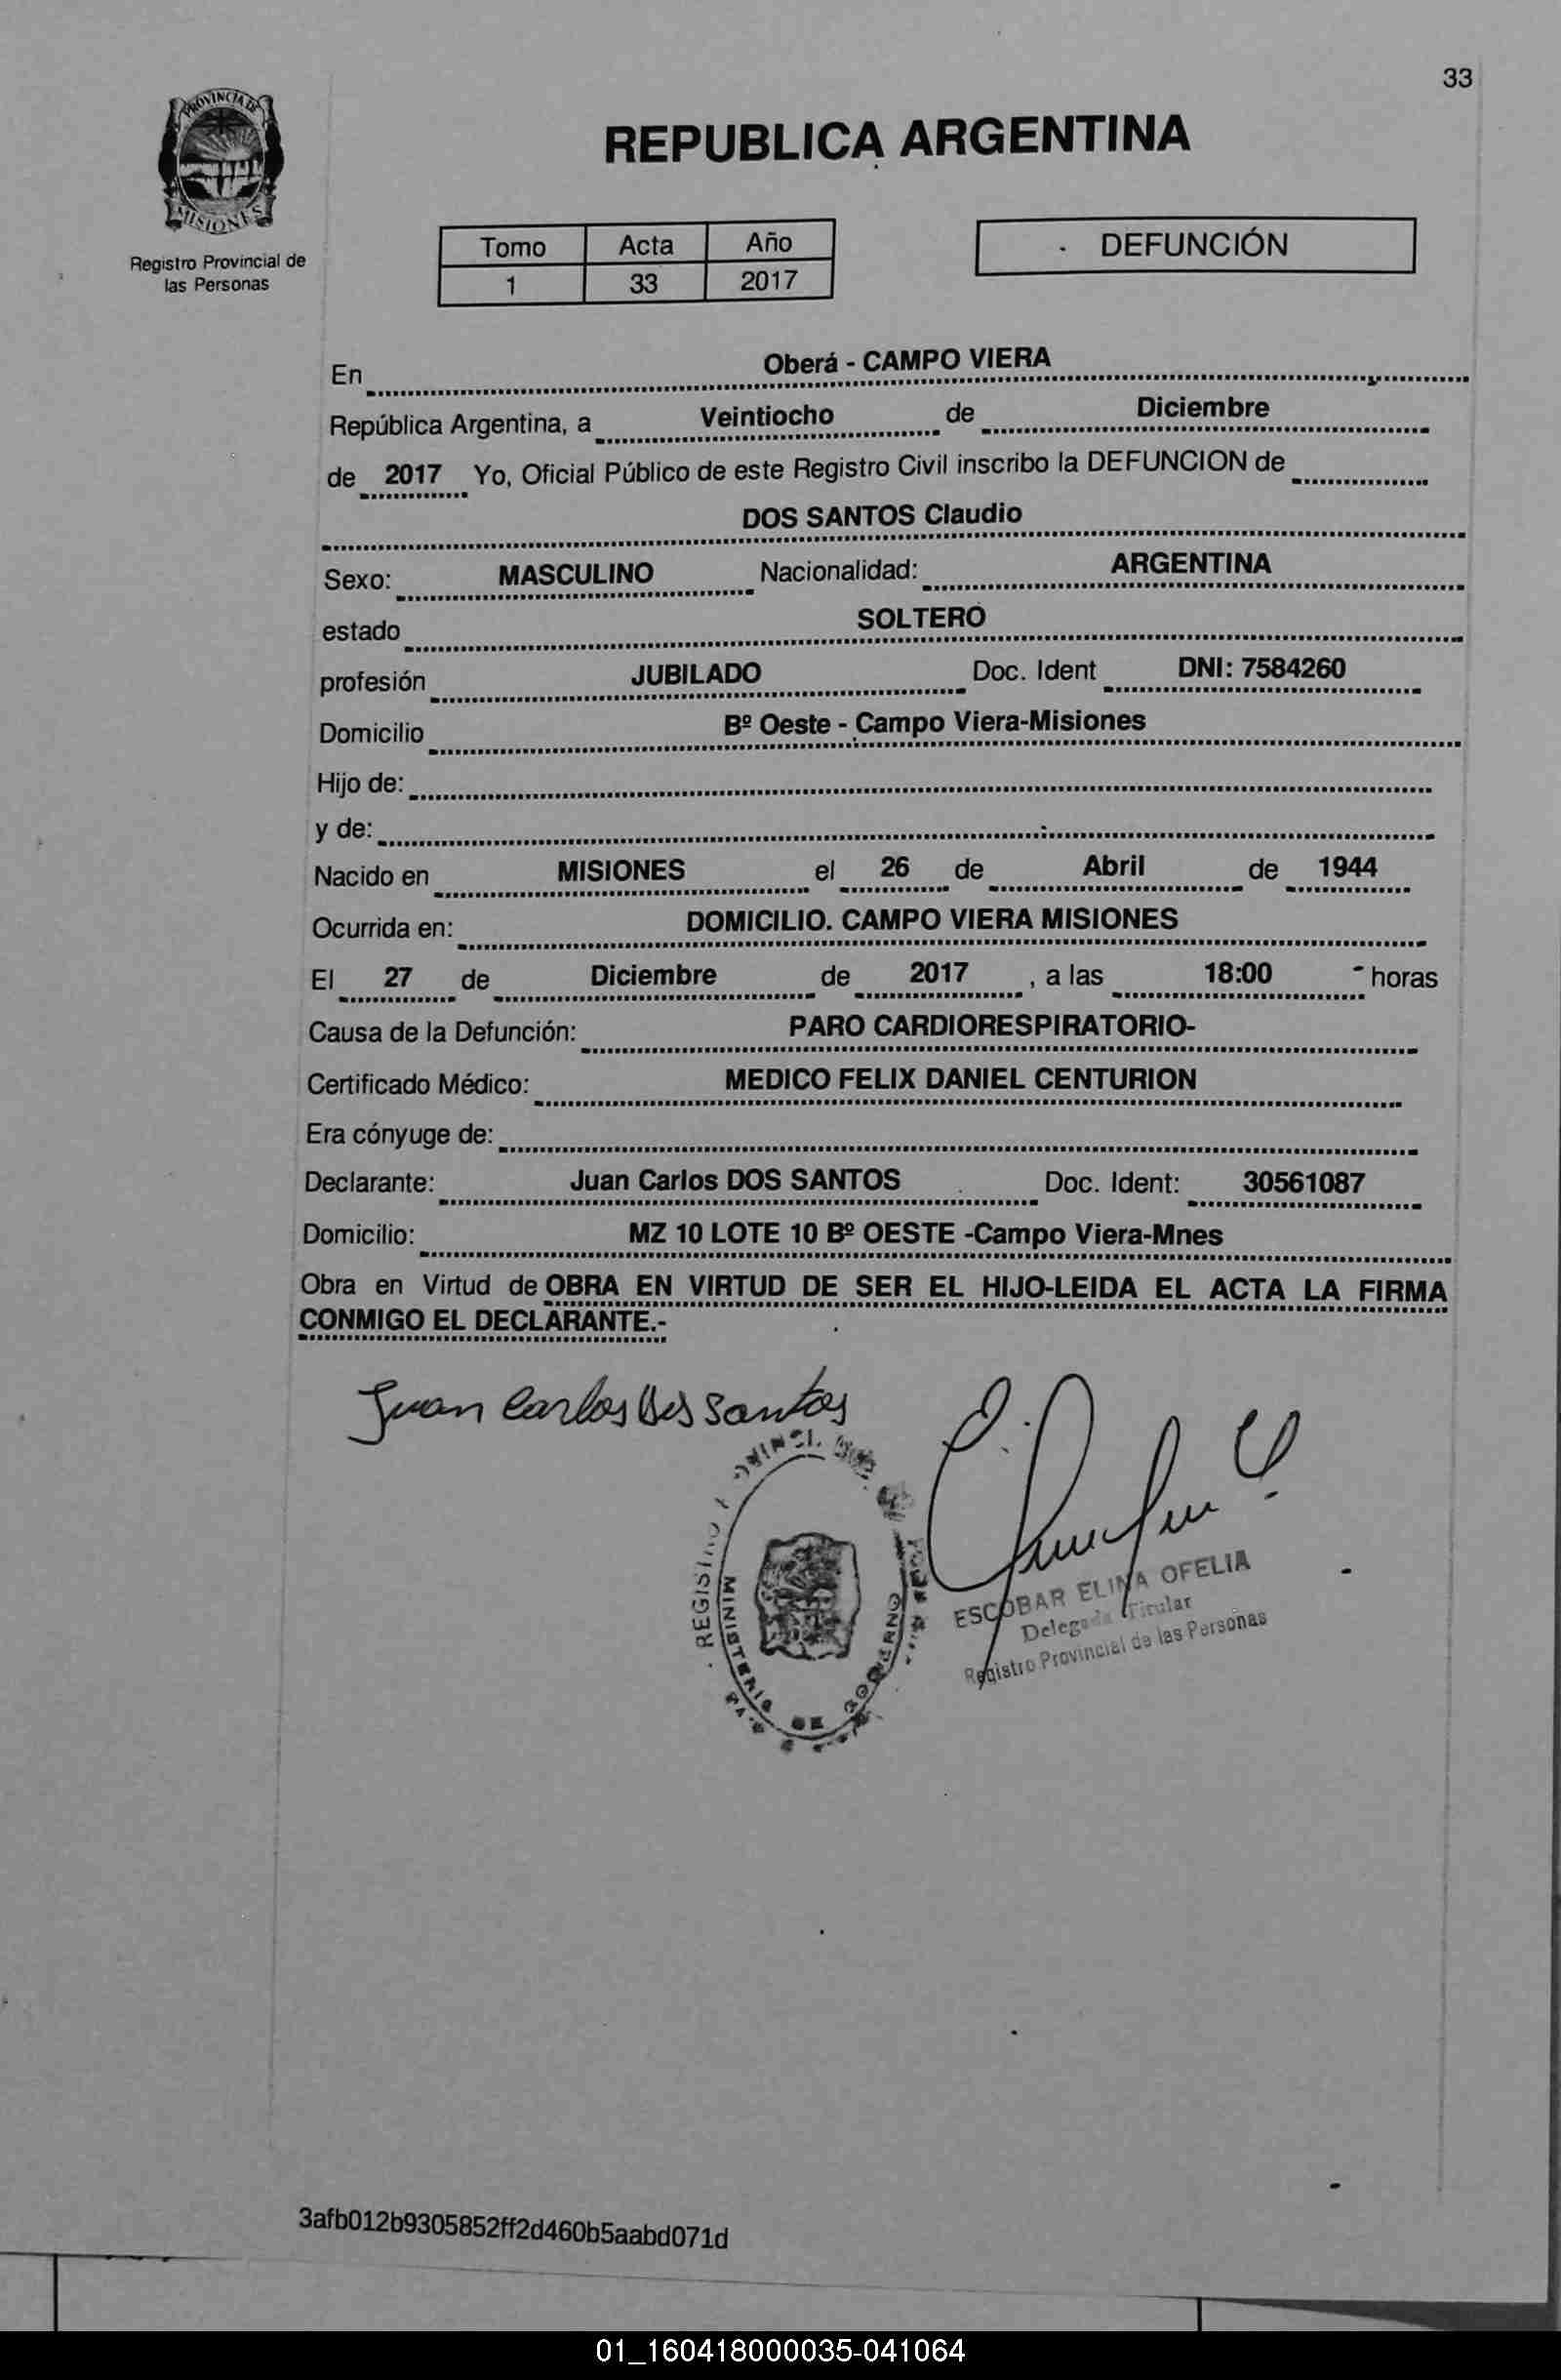 33
PROVINCIA DE
MISIONES
Registro Provincial de
las Personas
REPUBLICA ARGENTINA
Tomo Acta Año
1 33 2017
DEFUNCIÓN
En Oberá - CAMPO VIERA
República Argentina, a Veintiocho de Diciembre
de 2017 Yo, Oficial Público de este Registro Civil inscribo la DEFUNCION de
DOS SANTOS Claudio
Sexo: MASCULINO Nacionalidad: ARGENTINA
estado SOLTERO
profesión JUBILADO Doc. Ident DNI: 7584260
Domicilio Bº Oeste - Campo Viera-Misiones
Hijo de:
y de:
Nacido en MISIONES el 26 de Abril de 1944
Ocurrida en: DOMICILIO. CAMPO VIERA MISIONES
El 27 de Diciembre de 2017 , a las 18:00 horas
Causa de la Defunción: PARO CARDIORESPIRATORIO-
Certificado Médico: MEDICO FELIX DANIEL CENTURION
Era cónyuge de:
Declarante: Juan Carlos DOS SANTOS Doc. Ident: 30561087
Domicilio: MZ 10 LOTE 10 Bº OESTE -Campo Viera-Mnes
Obra en Virtud de OBRA EN VIRTUD DE SER EL HIJO-LEIDA EL ACTA LA FIRMA
CONMIGO EL DECLARANTE.-
Juan Carlos Dos Santos
REGISTRO
MINISTERIO DE GOBIERNO
ESCOBAR ELINA OFELIA
Delegada Titular
Registro Provincial de las Personas
3afb012b9305852ff2d460b5aabd071d
01_160418000035-041064